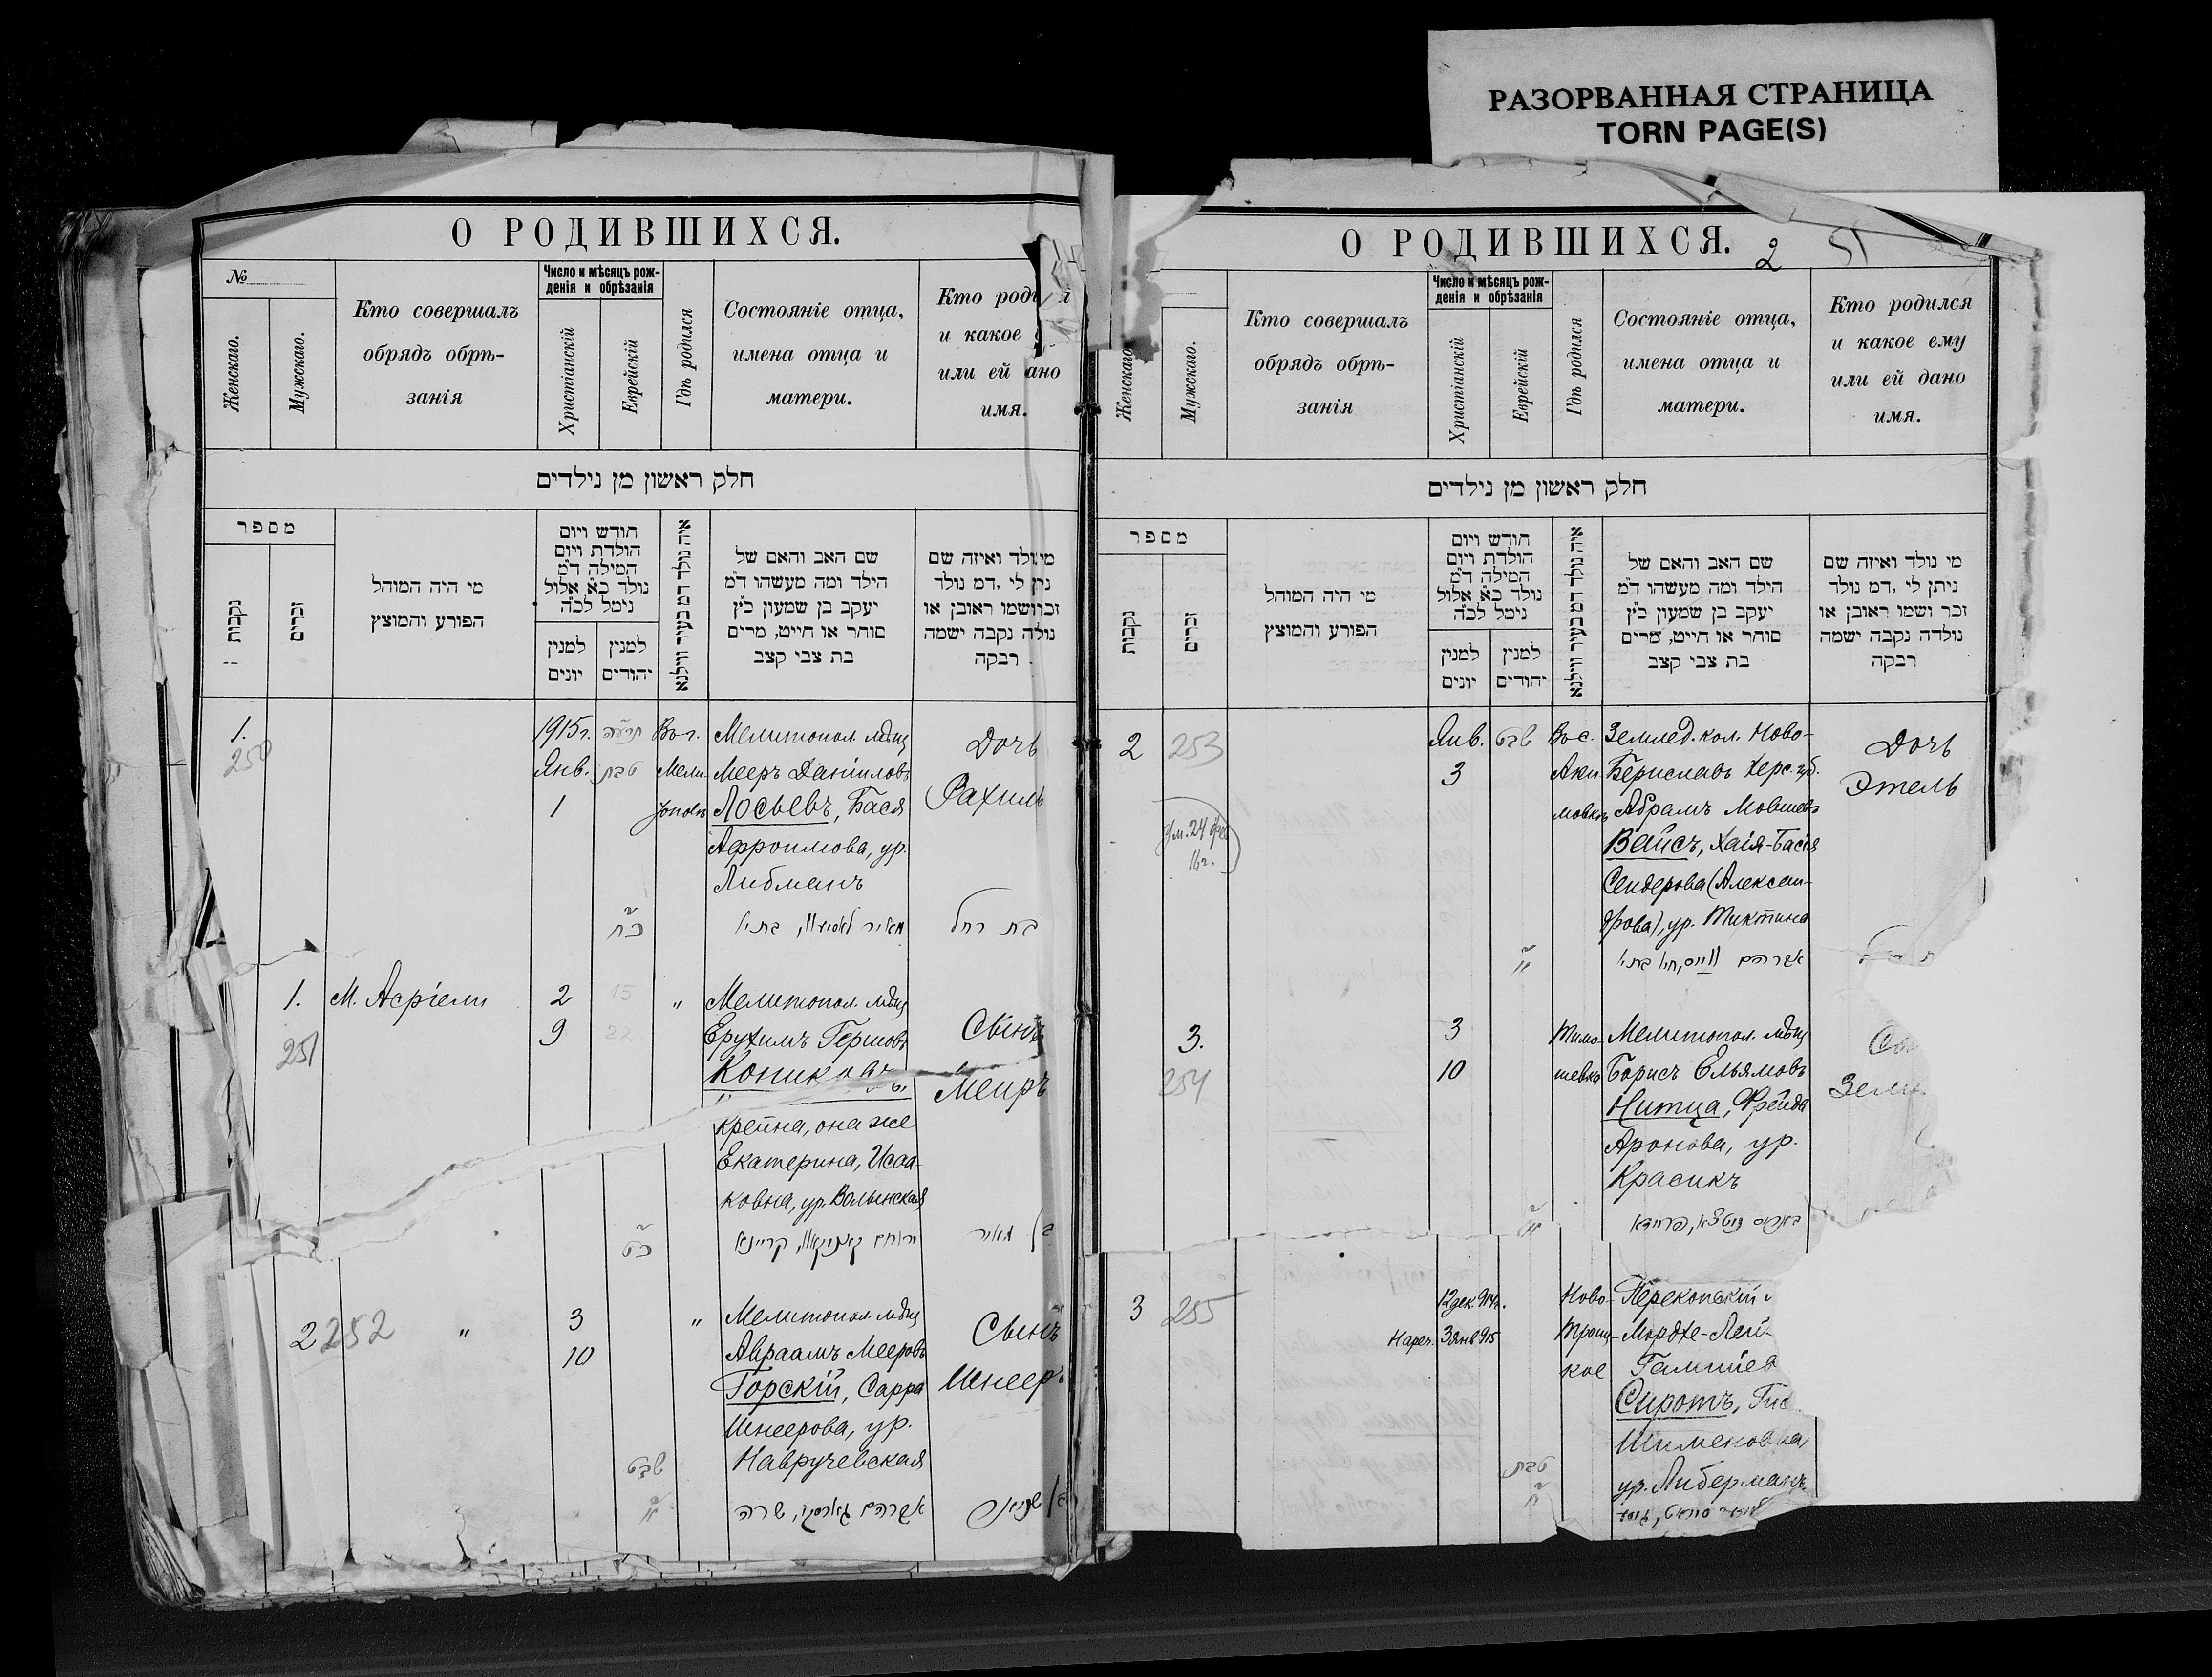 РАЗОРВАННАЯ СТРАНИЦА
TORN PAGE(S)
О РОДИВШИХСЯ.
№
Женскаго.
Мужскаго.
Кто совершалъ
обрядъ обрѣ-
занія
Число и мѣсяцъ рож-
денія и обрѣзанія
Христіанскій
Еврейскій
Гдѣ родился
Состояніе отца,
имена отца и
матери.
Кто
и какое
или ей
имя.
חלק ראשון מן נילדים
מספר
נקבות
זכרים
מי היה המוהל
הפורע והמוצץ
חודש ויום
הולדת ויום
המילה ד״מ
נולד כ״א אלול
נימל לכ״ה
למנין
יונים
למנין
יהודים
איה נולד דמ בעיר ווילנא
שם האב והאם של
הילד ומה מעשהו ד״מ
יעקב בן שמעון כ״ץ
סוחר או חייט, מרים
בת צבי קצב
ואיזה שם
לי ,דמ נולד
ראובן או
נקבה ישמה
רבקה
1.
250
1915 г.
Янв.
1
תרע״ה
טבת
כ״ח
Въ г.
Мели-
тополѣ
Мелитопол. мѣщ
Мееръ Даниловъ
Лосьевъ, Бася
Афроимова, ур.
Либманъ
Дочь
Рахиль
בת רחל
1.
251
М. Асріели
2
9
15
22
כ״ט
"
Мелитопол. мѣщ
Ерухимъ Гершовъ
Крейна, она же
Екатерина, Исаа-
ковна, ур. Волынская
Сынъ
Меиръ
בן מאיר
2 252
"
3
10
שבט
"
Мелитопол. мѣщ
Авраамъ Мееровъ
Горскій, Сарра
Шнеерова, ур.
Навручевская
אברהם גארסקי, שרה
Сынъ
Шнееръ
О РОДИВШИХСЯ.
2 51
Женскаго
Мужскаго.
Кто совершалъ
обрядъ обрѣ-
занія
Число и мѣсяцъ рож-
денія и обрѣзанія
Христіанскій
Еврейскій
Гдѣ родился
Состояніе отца,
имена отца и
матери.
Кто родился
и какое ему
или ей дано
имя.
חלק ראשון מן נילדים
מספר
נקבות
זכרים
מי היה המוהל
הפורע והמוצץ
חודש ויום
הולדת ויום
המילה ד״מ
נולד כ״א אלול
נימל לכ״ה
למנין
יונים
למנין
יהודים
איה נולד דמ בעיר ווילנא
שם האב והאם של
הילד ומה מעשהו ד״מ
יעקב בן שמעון כ״ץ
סוחר או חייט, מרים
בת צבי קצב
מי נולד ואיזה שם
ניתן לי ,דמ נולד
זכר ושמו ראובן או
נולדה נקבה ישמה
רבקה
2
253
ум. 24 фев
16 г.
Янв.
3
שבט
Въ с.
Аки-
мовкѣ
Землед. кол. Ново-
Бериславъ Херс. губ.
Абрамъ Мовшевъ
Вайсъ, Хаія-Бася
Сендерова (Алексан-
дрова), ур. Тиктина
Дочь
Этель
3.
254
3
10
Тимо-
шевка
Мелитопол. мѣщ
Борисъ Ельямовъ
Нитца, Фрейда
Аронова, ур.
Красикъ
3
255
12 дек. 914 г.
Нареч. 3 янв 915
טבת
Ново-
Троиц-
кое
Перекопскій
Мордхе-Лей-
Сиротъ,
Шименовна,
ур. Либерманъ